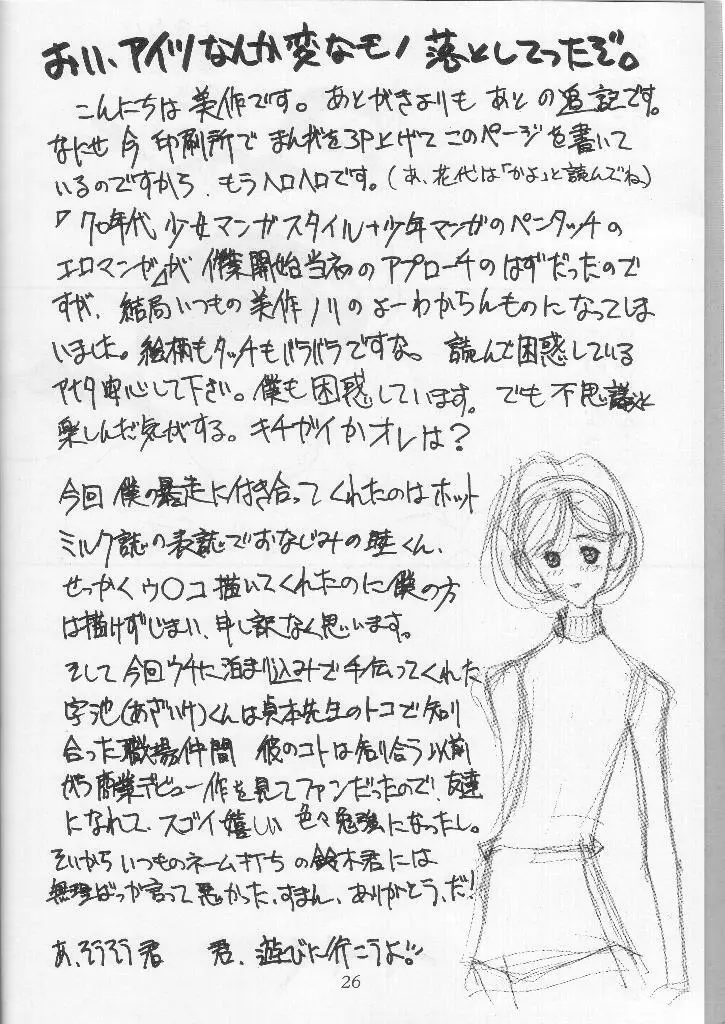 おい、アイツなんか変なモノ落としてったぞ。
こんにちは美作です。あとがきよりもあとの追記です。
なにせ今印刷所でまんがを3P上げてこのページを書いて
いるのですから、もうヘロヘロです。(あ、花代は「かよ」と読んでね)
『70年代少女マンガスタイル+少年マンガのペンタッチの
エロマンガ』が作業開始当初のアプローチのはずだったので
すが、結局いつもの美作ノリのよーわからんものになってしま
いました。絵柄もタッチもバラバラですな。読んで困惑している
アナタ安心して下さい。僕も困惑しています。でも不思議と
楽しんだ気がする。キチガイかオレは?
今回僕の暴走に付き合ってくれたのはホット
ミルク誌の表誌でおなじみの くん、
せっかくウ〇コ描いてくれたのに僕の方
は描けずじまい、申し訳なく思います。
そして今回ウチに泊まり込みで手伝ってくれた
字池(あざいけ)くんは貞本先生のトコで知り
合った職場仲間 彼のコトは知り合う以前
から商業デビュー作を見てファンだったので、友達
になれて、スゴイ嬉しい 色々勉強になったし。
それからいつものネーム打ちの鈴木君には
無理ばっか言って悪かった、すまん、ありがとう、だ!
あ、そうそう君 君、遊びに行こうよ!!
26